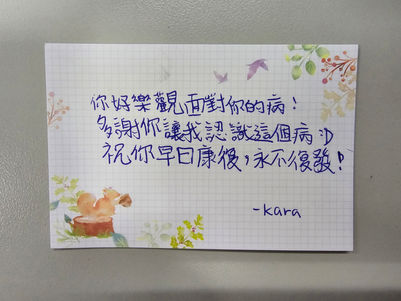 你好樂觀面對你的病！
多謝你讓我認識這個病 :D
祝你早日康復，永不復發！
-kara